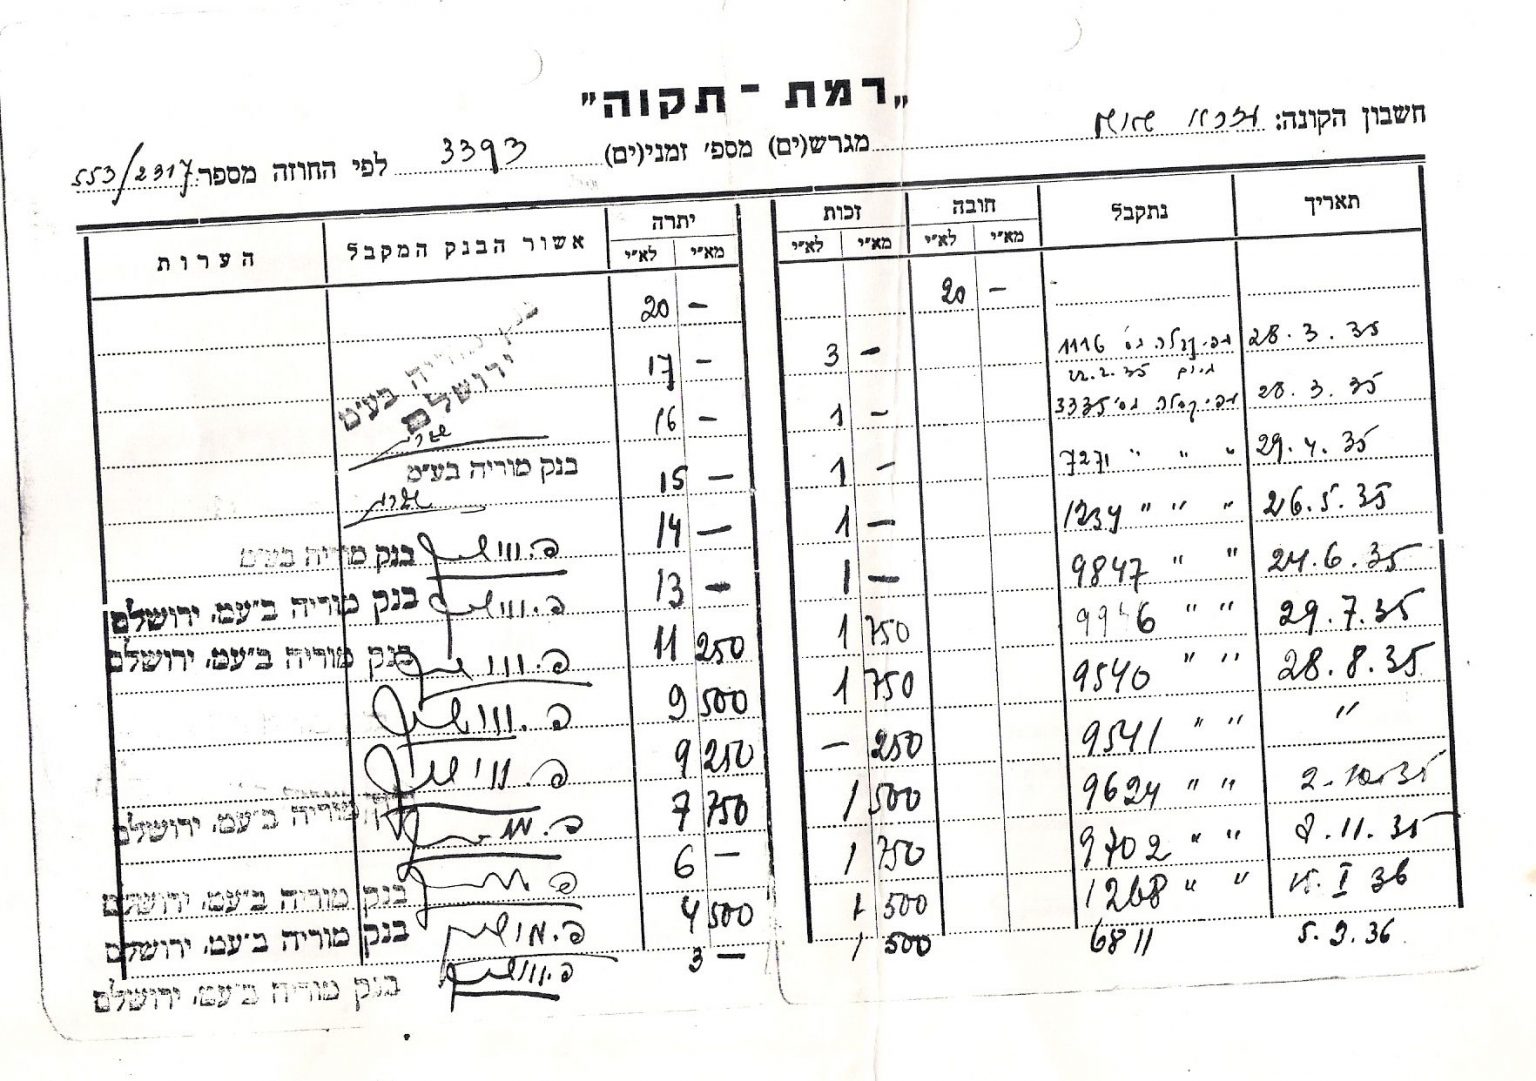 „רמת - תקוה"
חשבון הקונה:
מגרש(ים) מספ׳ זמני(ים) 3393 לפי החוזה מספר 553/2317
תאריך נתקבל חובה זכות יתרה אשור הבנק המקבל הערות
מא״י לא״י מא״י לא״י מא״י לא״י
— 20 — 20
28.3.35 1116 — 3 — 17 בנק מוריה בע״מ ירושלם
22.2.35
28.3.35 3335 — 1 — 16
29.4.35 " " " 7271 — 1 — 15 בנק מוריה בע״מ
26.5.35 " " " 1234 — 1 — 14
24.6.35 " " 9847 — 1 — 13 בנק מוריה בע״מ
29.7.35 " " 750 1 250 11 בנק מוריה ב״עמ, ירושלם
28.8.35 " " 9540 750 1 500 9 בנק מוריה ב״עמ, ירושלם
" " " 9541 250 — 250 9
2.10.35 " " 9624 500 1 750 7
8.11.35 " " 9702 750 1 — 6 בנק מוריה ב״עמ, ירושלם
15.I 36 " " 1268 500 1 500 4 בנק מוריה ב״עמ, ירושלם
5.9.36 6811 500 1 — 3 בנק מוריה ב״עמ, ירושלם
בנק מוריה ב״עמ, ירושלם